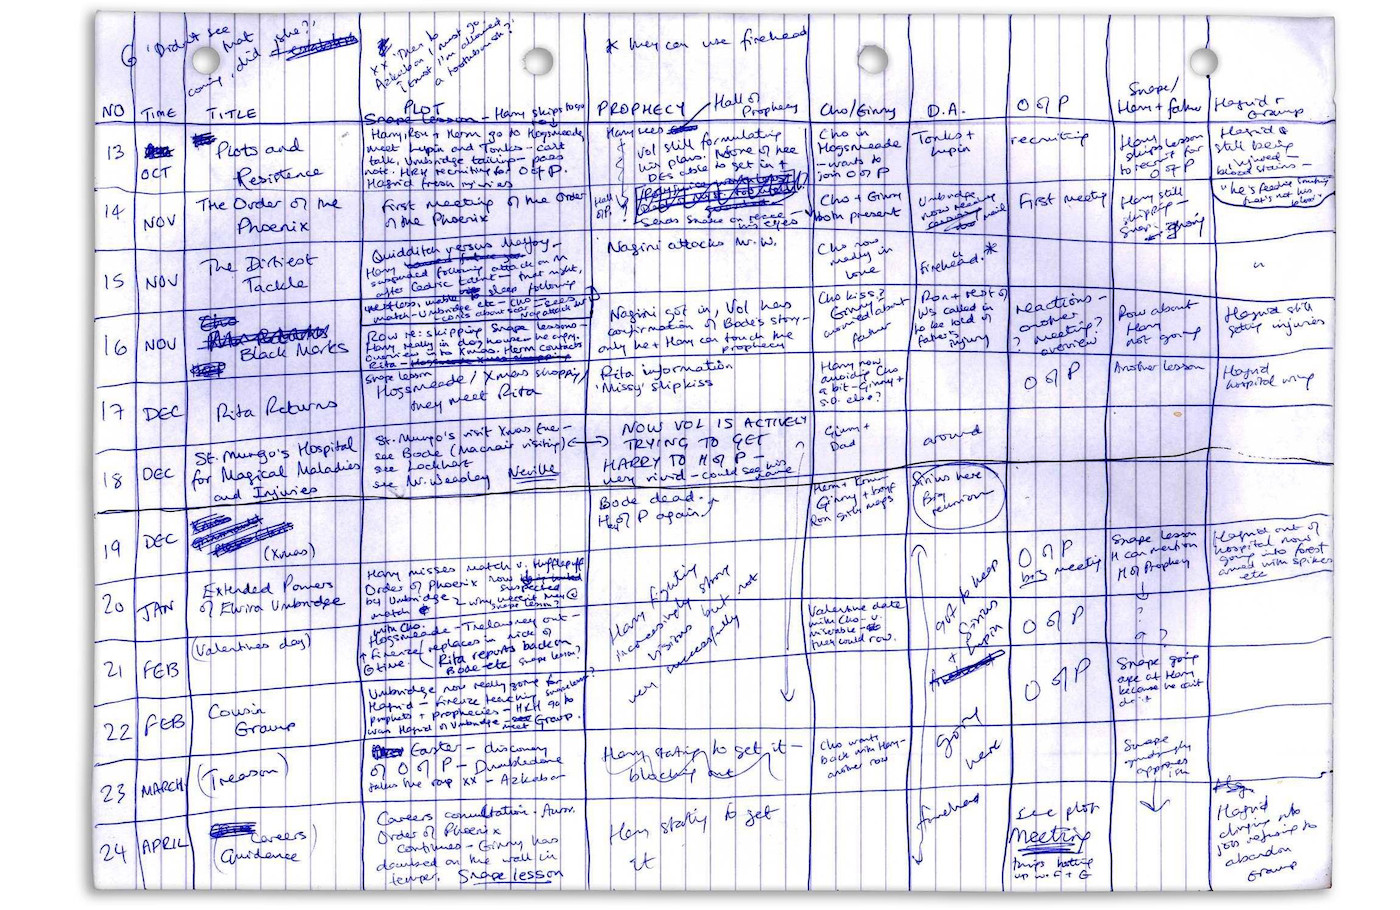 6 'Didn't see
that
coming, did she?'
xx 'Then to
Azkaban I must go.
I trust I'm allowed
a toothbrush?'
* they can use firehead
NO
TIME
TITLE
PLOT
PROPHECY
Hall of
Prophecy
Cho/Ginny
D.A.
O of P
Snape/
Harry + father
Hagrid +
Grawp
13
OCT
Plots and
Resistence
Snape lesson - Harry skips to go
Harry, Ron + Herm go to Hogsmeade,
meet Lupin and Tonks - can't
talk, Umbridge tailing - pass
note. HRH recruiting for O of P.
Hagrid fresh injuries
Harry sees
Vol still formulating
his plans. None of the
DEs able to get in +
Cho in
Hogsmeade
- wants to
join O of P
Tonks +
Lupin
recruiting
Harry
skips lesson
to recruit for
O of P
Hagrid
still being
injured -
blood stains -
14
NOV
The Order of the
Phoenix
First meeting of the Order
of the Phoenix
Hall
of P.
Sends snake on recce -
his eyes
Cho + Ginny
both present
Umbridge
now reading
mail
First meeting
Harry still
skipping -
Snape
"he's feeding
that's not his
blood"
15
NOV
The Dirtiest
Tackle
Quidditch versus Malfoy -
Harry
suspended following attack on M
after Cedric taunt - that night,
restless, unable to sleep following
match - Umbridge etc - Cho - sees
Nag attack MW
Nagini attacks Mr. W.
Cho now
madly in
love
"
Firehead.*
"
16
NOV
Black Marks
Row re: skipping Snape lessons -
Harry really in doghouse - he angry.
Overview into Xmas. Herm contacts
Rita -
Nagini got in, Vol has
confirmation of Bode's story -
only he + Harry can touch the
prophecy
Cho kiss?
Ginny
worried about
father
Ron + rest of
Ws called in
to be told of
father's
injury
reactions -
another
meeting?
? overview
Row about
Harry
not going
Hagrid still
getting injuries
17
DEC
Rita Returns
Snape lesson
Hogsmeade / Xmas shopping/
they meet Rita
Rita information
'Missy' slipkiss
Harry now
avoiding Cho
a bit - Ginny +
s.o. else?
O of P
Another lesson
Hagrid
hospital wing
18
DEC
St. Mungo's Hospital
for Magical Maladies
and Injuries
St. Mungo's visit Xmas Eve -
see Bode (Macnair visiting)
see Lockhart
see Mr. Weasley Neville
NOW VOL IS ACTIVELY
TRYING TO GET
HARRY TO H of P -
very vivid - could see his
name
Ginny +
Dad
around
19
DEC
(Xmas)
Bode dead.
H of P again
Herm + Krum
Ginny + boyf
Ron
Sirius here
Big
reunion
O of P
big meeting
Snape lesson
H can mention
H of Prophecy
Hagrid out of
hospital now
going into forest
armed with spikes
etc
20
JAN
Extended Powers
of Elvira Umbridge
Harry misses match v. Hufflepuff
Order of Phoenix now
suspected
by Umbridge
match
Snape lesson?
Harry fighting
increasingly strong
visions but not
very successfully
Valentine date
with Cho - v.
miserable -
row.
got to keep
Sirius
+ Lupin
O of P
?
21
FEB
(Valentines day)
with Cho.
Hogsmeade - Trelawney out -
Firenze replaces in nick of
time. Rita reports back on
Bode etc Snape lesson?
?
22
FEB
Cousin
Grawp
Umbridge now really going for
Hagrid - Firenze teaching Snape lesson?
prophets + prophecies - H+H go to
warn Hagrid of Umbridge - meet Grawp.
going
here
O of P
Snape going
ape at Harry
because he can't
do it
23
MARCH
(Treason)
Easter - discovery
of O of P - Dumbledore
takes the rap xx - Azkaban
Harry starting to get it -
blocking out
Cho wants
back with Harry -
another row
Snape
grudgingly
approves
24
APRIL
(Careers
Guidance)
Careers consultation - Auror.
Order of Phoenix
continues - Ginny has
daubed on the wall in
temper. Snape lesson
Harry starting to get
it
firehead
see plot
Meeting
things hotting
up w. F + G
Hagrid
clinging into
job refusing to
abandon
Grawp